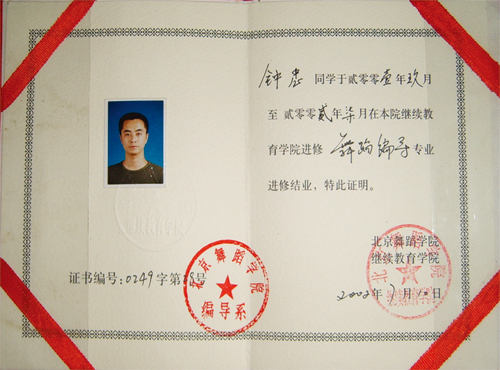 钟忠 同学于贰零零壹年玖月
至 贰零零贰年柒月在本院继续教
育学院进修 舞蹈编导 专业
进修结业，特此证明。
北京舞蹈学院
继续教育学院
2002年7月10日
证书编号：0249字第28号
北京舞蹈学院
编导系
北京舞蹈学院